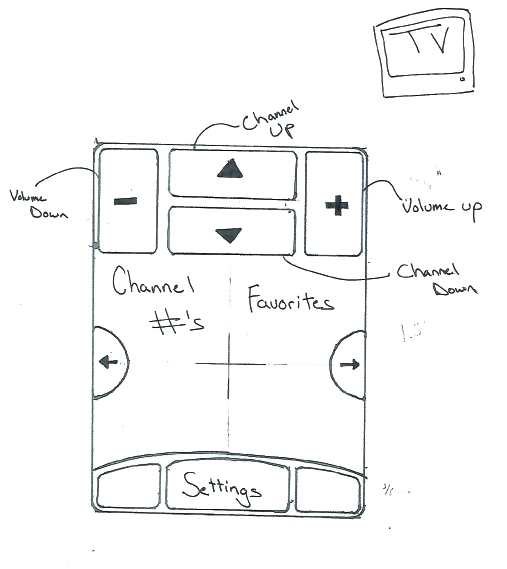 TV
Channel
Up
Volume
Down
Volume up
Channel
Down
Channel
#'s
Favorites
Settings